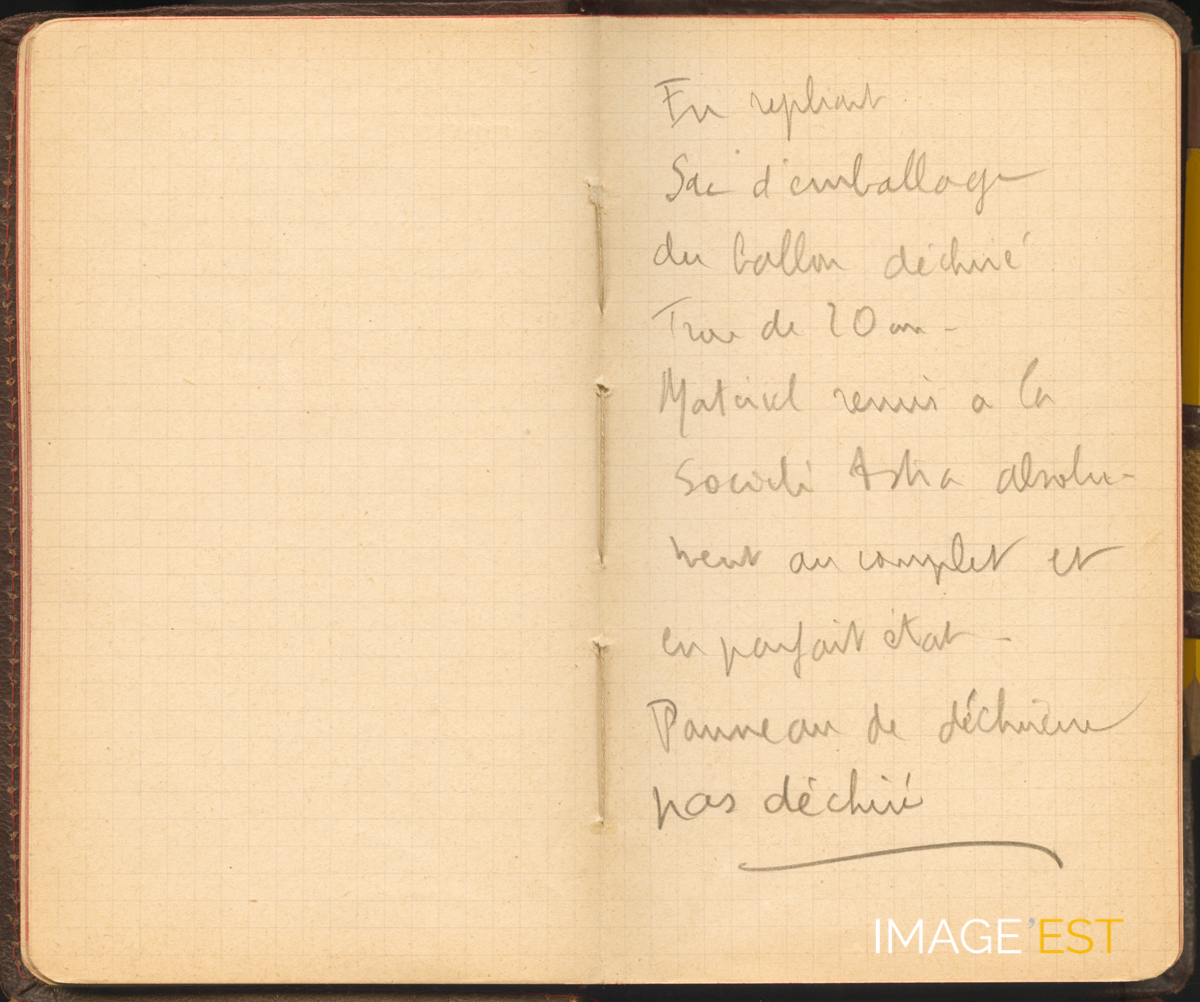 En repliant
Sac d'emballage
du ballon déchiré
Trou de 20 cm -
Matériel remis a la
Société Astra absolu-
ment au complet et
en parfait état -
Panneau de déchirure
pas déchiré
IMAGE'EST